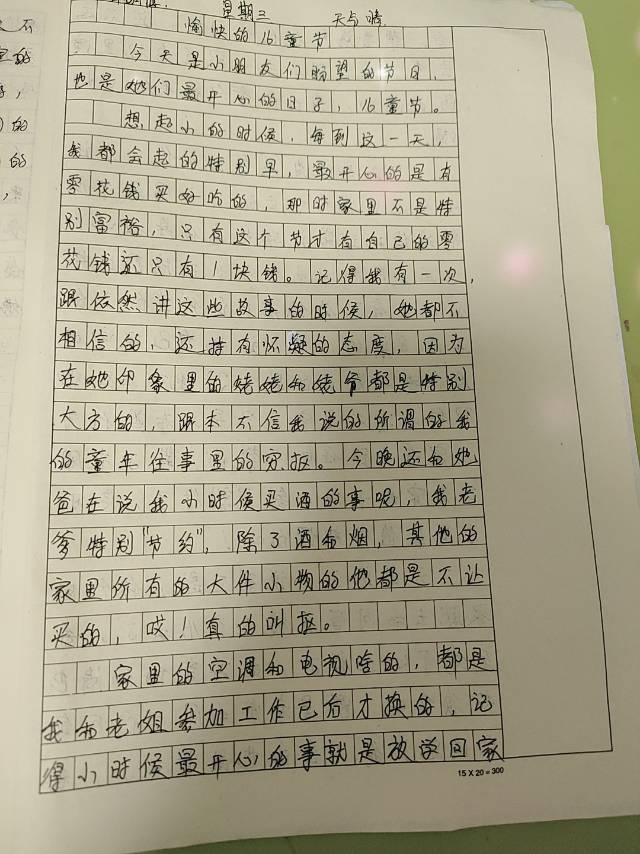 星期三 天气晴
愉快的16童节
今天是小朋友们盼望的节日,
也是她们最开心的日子,16童节。
想起小的时候,每到这一天,
我都会起的特别早,最开心的是有
零花钱买好吃的,那时家里不是特
别富裕,只有这个节才有自己的零
花钱还只有1块钱。记得我有一次,
跟依然讲这些故事的时候,她都不
相信的,还持有怀疑的态度,因为
在她印象里的姥姥和姥爷都是特别
大方的,跟本不信我说的所谓的我
的童年往事里的穷抠。今晚还和她
爸在说我小时候买酒的事呢,我老
爹特别"节约",除了酒和烟,其他的
家里所有的大件小物的他都是不让
买的,哎!真的叫抠。
家里的空调和电视啥的,都是
我和老姐参加工作已后才换的,记
得小时候最开心的事就是放学回家
15 X 20 = 300